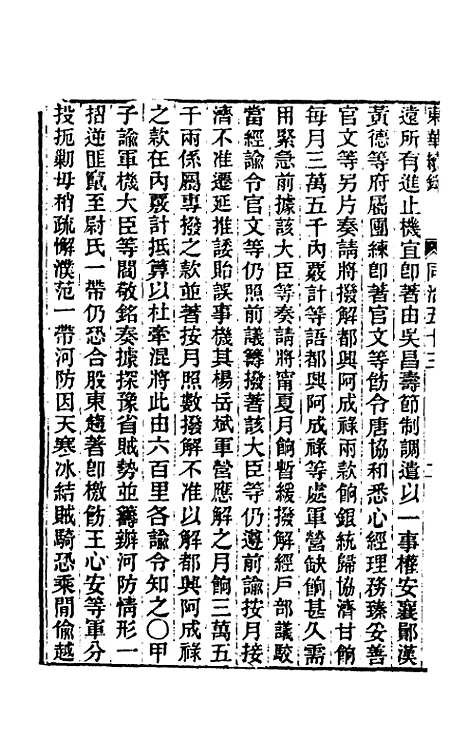 東華續錄 同治五十三
遠所有進止機宜卽著由吳昌壽節制調遣以一事權安襄鄖漢
黃德等府屬團練卽著官文等飭令唐協和悉心經理務臻妥善
官文等另片奏請將撥解都興阿成祿兩款餉銀統歸協濟甘餉
每月三萬五千內覈計等語都興阿成祿等處軍營缺餉甚久需
用緊急前據該大臣等奏請將甯夏月餉暫緩撥解經戶部議駮
當經諭令官文等仍照前議籌撥著該大臣等仍遵前諭按月接
濟不准遷延推諉貽誤事機其楊岳斌軍營應解之月餉三萬五
千兩係屬專撥之款並著按月照數撥解不准以解都興阿成祿
之款在內覈計抵算以杜牽混將此由六百里各諭令知之〇甲
子諭軍機大臣等閻敬銘奏據探豫省賊勢並籌辦河防情形一
招逆匪竄至尉氏一帶仍恐合股東趨著卽檄飭王心安等軍分
投扼剿毋稍疏懈濮范一帶河防因天寒冰結賊騎恐乘閒偷越